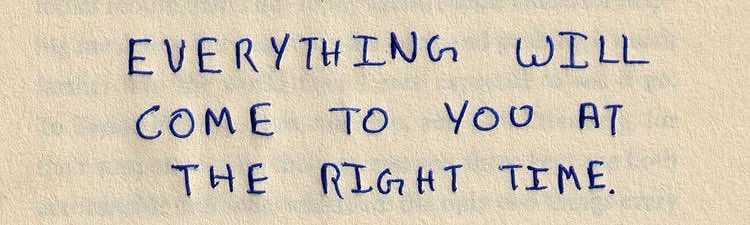 EVERYTHING WILL
COME TO YOU AT
THE RIGHT TIME.